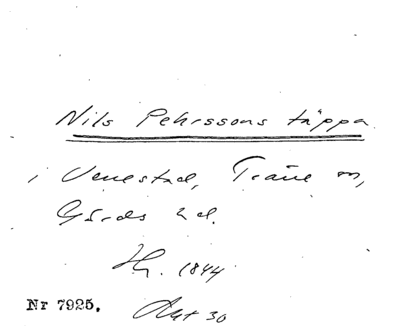 Nils Pehrssons täppa
i Venestad, Träne sn,
Gärds hd.
Hr. 1844
Nr 7925. Akt 30